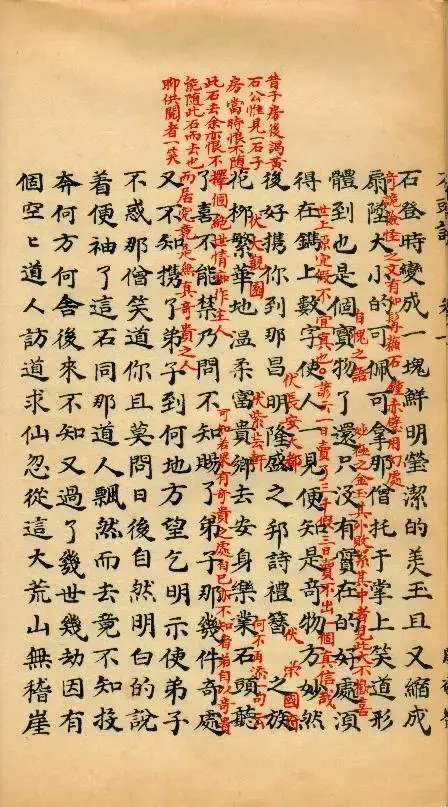 昔子房後謁黃
石公惟見一石子
房當時恨不随
此石去余亦恨不
能随此石而去也
聊供閱者一笑
石登時變成一塊鮮明瑩潔的美玉且又縮成
奇詭險怪之文有如髯蘇石鐘赤壁用幻處
扇墜大小的可佩可拿那僧托于掌上笑道形
自愧之語
妙極今之金玉其外敗絮其中者見此大不歡喜
體到也是個寶物了還只沒有實在的好處湏
世上原宜假不宜真也。諺云一日賣了三千假三日賣不出一個真信哉
得在鐫上數字使人一見便知是奇物方妙然
伏長安大都
伏榮國府
後好携你到那昌明隆盛之邦詩禮簪 之族
伏大觀園
伏紫芸軒
何不再添一句云
花栁繁華地温柔富貴鄉去安身樂業石頭聽
擇個絕世情痴作主人
可知若果有奇貴之處自己亦不知者若自以奇貴
了喜不能禁乃問不知賜了弟子那幾件奇處
而居究竟是無真奇貴之人
又不知携了弟子到何地方望乞明示使弟子
不惑那僧笑道你且莫問日後自然明白的說
着便袖了這石同那道人飄然而去竟不知投
奔何方何舍後來不知又過了幾世幾劫因有
個空ヒ道人訪道求仙忽從這大荒山無稽崖